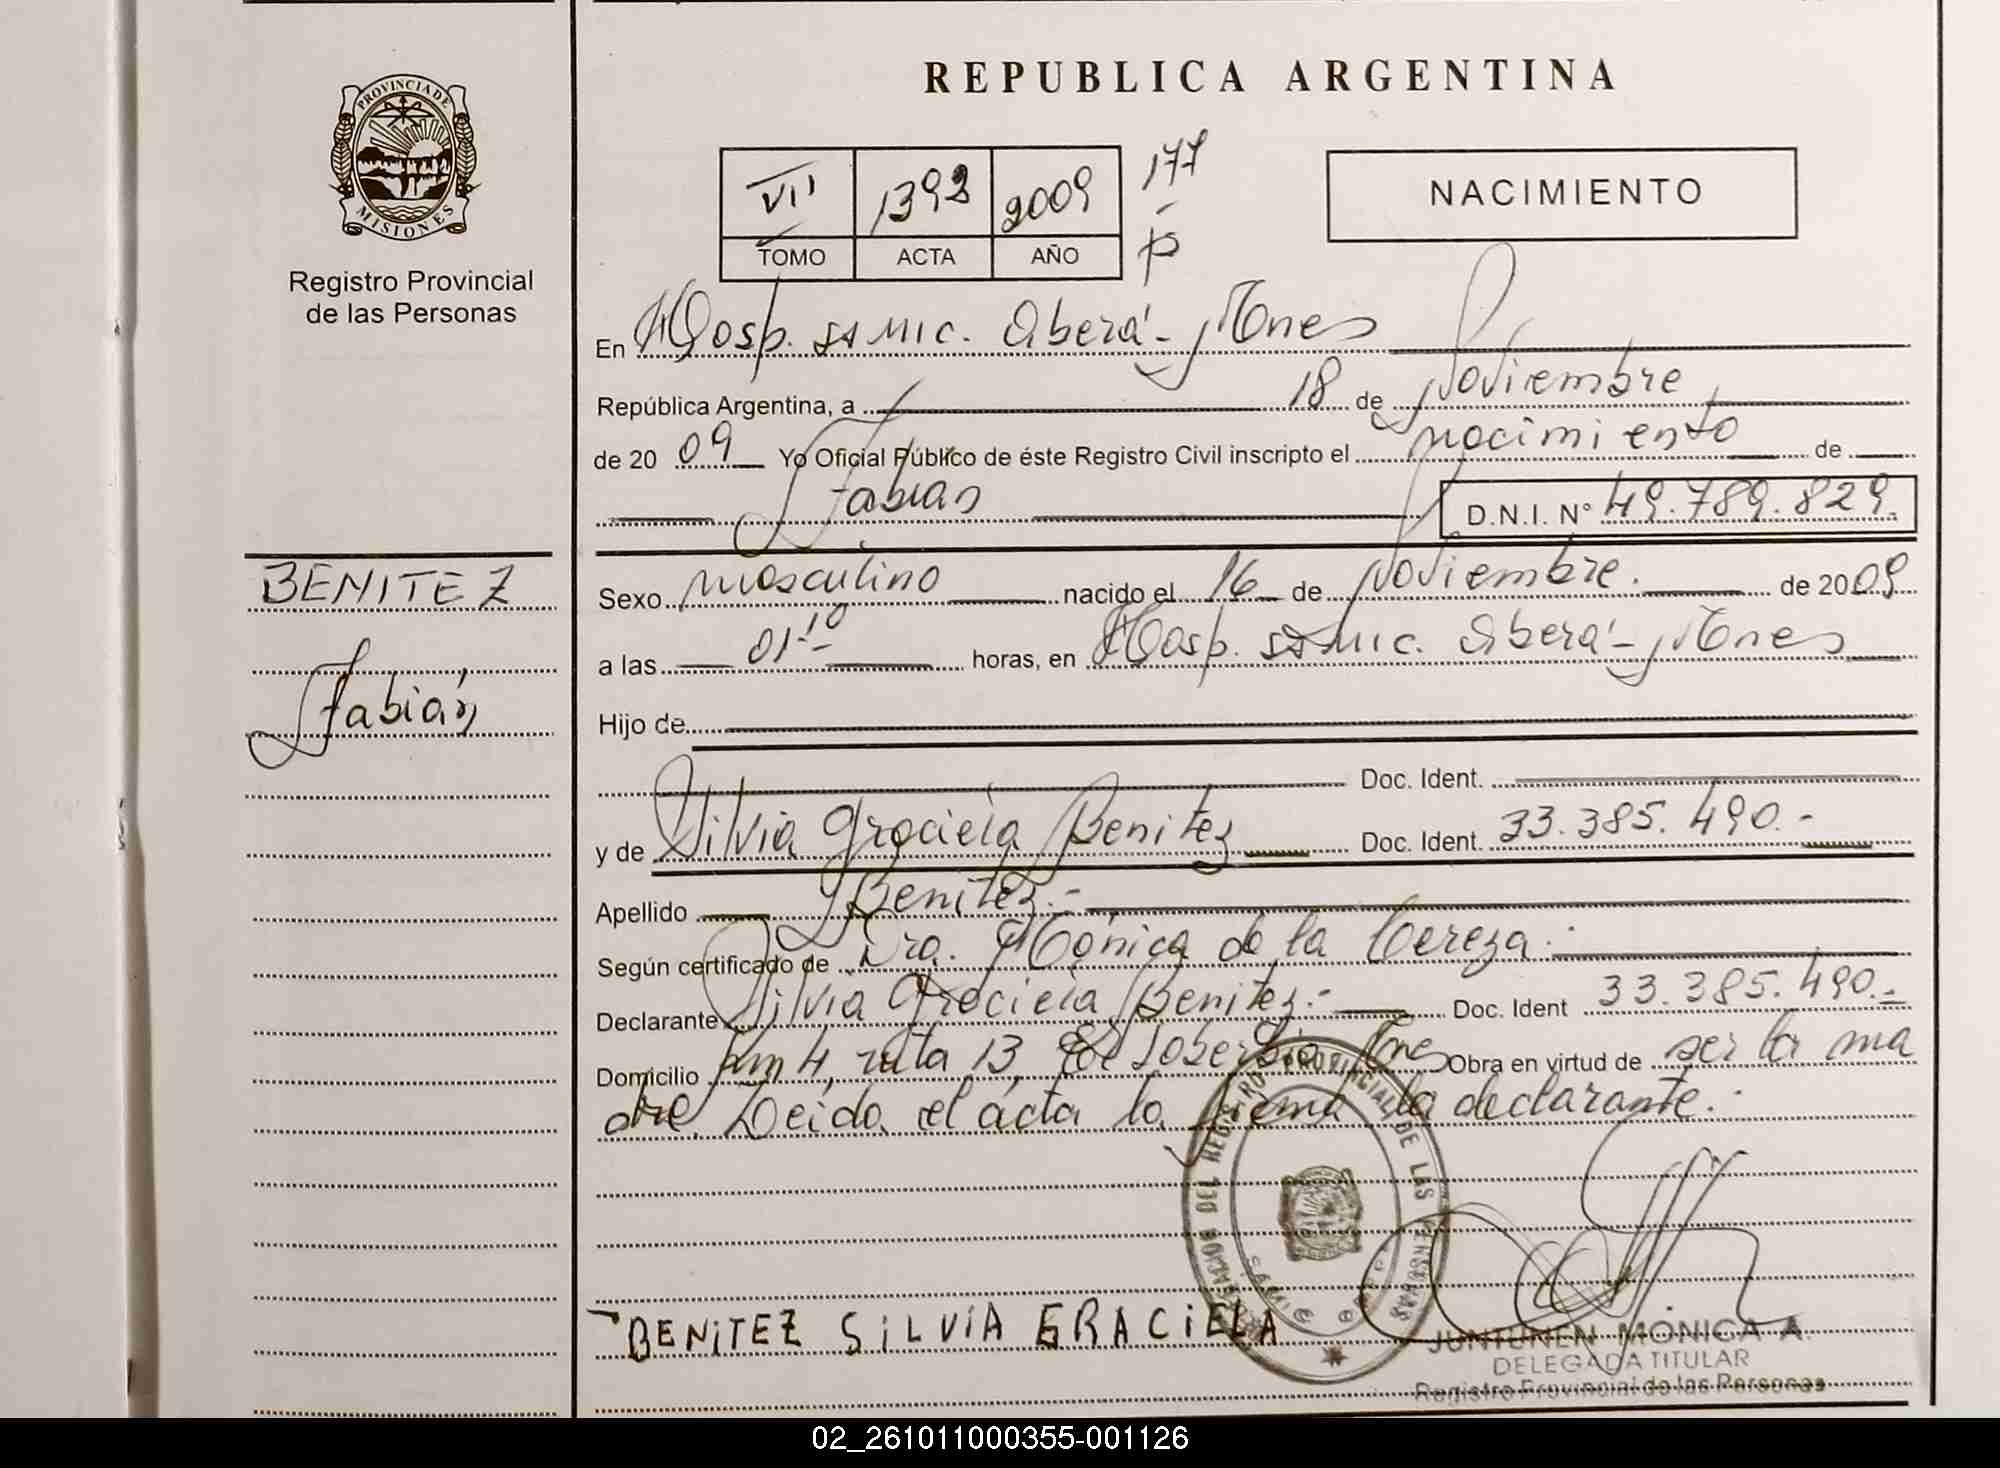 REPUBLICA ARGENTINA
PROVINCIA DE
MISIONES
Registro Provincial
de las Personas
VII 1393 2009
TOMO ACTA AÑO
177
NACIMIENTO
En Hosp. SAMIC. Oberá - Mnes
República Argentina, a 18 de Noviembre
de 2009 Yo Oficial Público de éste Registro Civil inscripto el nacimiento de
Fabián
D.N.I. N° 49.789.829.
BENITEZ
Fabián
Sexo masculino nacido el 16 de Noviembre. de 2009
a las 01-10 horas, en Hosp. SAMIC. Oberá - Mnes
Hijo de
Doc. Ident.
y de Silvia Graciela Benitez Doc. Ident. 33.385.490.-
Apellido Benitez.-
Según certificado de Dra. Mónica de la Cereza.-
Declarante Silvia Graciela Benitez.- Doc. Ident 33.385.490.-
Domicilio Km 4, ruta 13, El Soberbio Mnes Obra en virtud de ser la ma
dre. Leida el acta la firma la declarante.-
DEL REGISTRO PROVINCIAL DE LAS PERSONAS
BENITEZ SILVIA GRACIELA
JUNTUNEN MONICA A.
DELEGADA TITULAR
Registro Provincial de las Personas
02_261011000355-001126